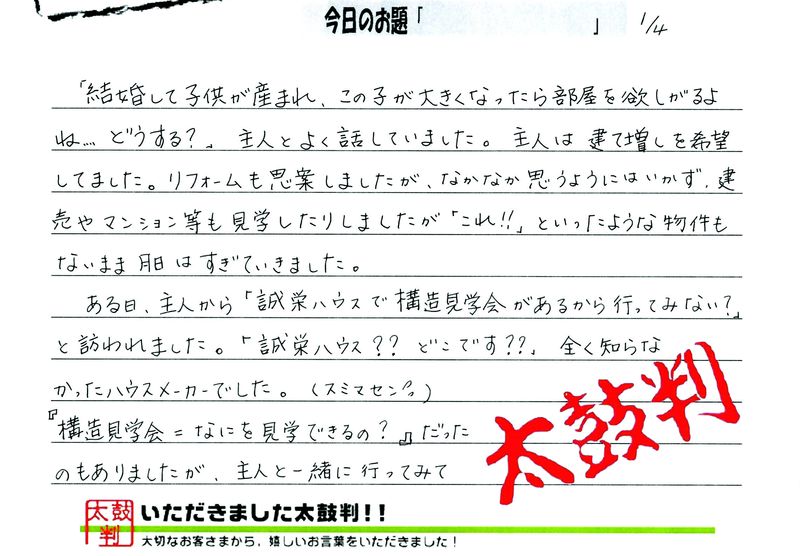 今日のお題「 」 1/4
「結婚して子供が産まれ、この子が大きくなったら部屋を欲しがるよ
ね…. どうする?」 主人とよく話していました。主人は 建て増しを希望
してました。リフォームも思案しましたが、なかなか思うようにはいかず、建
売やマンション等も見学したりしましたが「これ!!」といったような物件も
ないまま 月日はすぎていきました。
ある日、主人から「誠栄ハウスで構造見学会があるから行ってみない?」
と訪われました。「誠栄ハウス?? どこです??」 全く知らな
かったハウスメーカーでした。(スミマセン)
『構造見学会=なにを見学できるの?』だった
のもありましたが、主人と一緒に行ってみて
太鼓判
太鼓判
いただきました太鼓判!!
大切なお客さまから、嬉しいお言葉をいただきました!